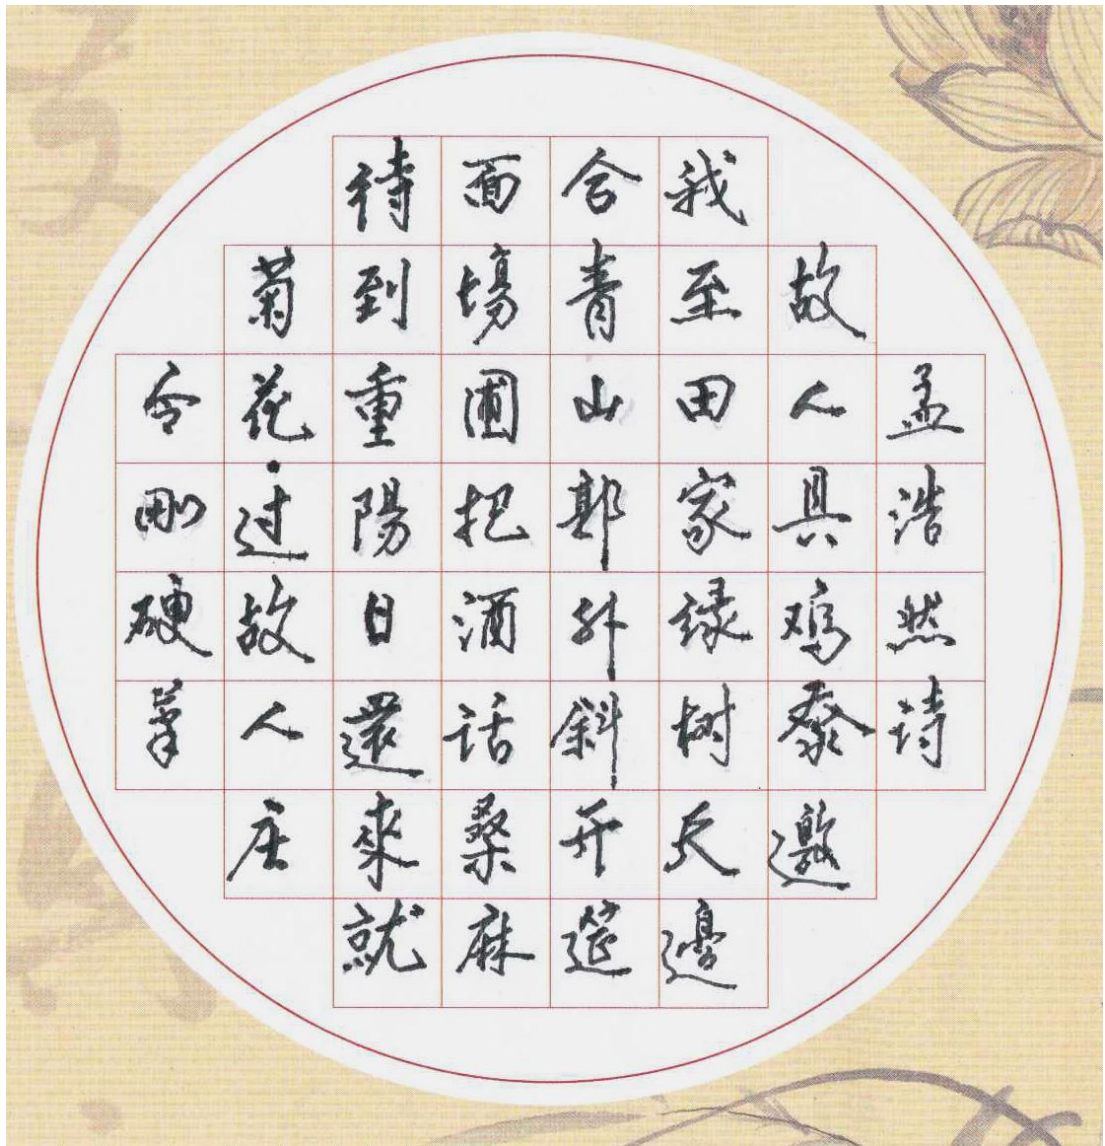 孟浩然诗
故人具鸡黍邀
我至田家绿树天邊
合青山郭外斜开筵
面場圃把酒话桑麻
待到重陽日還來就
菊花过故人庄
令刚硬笔